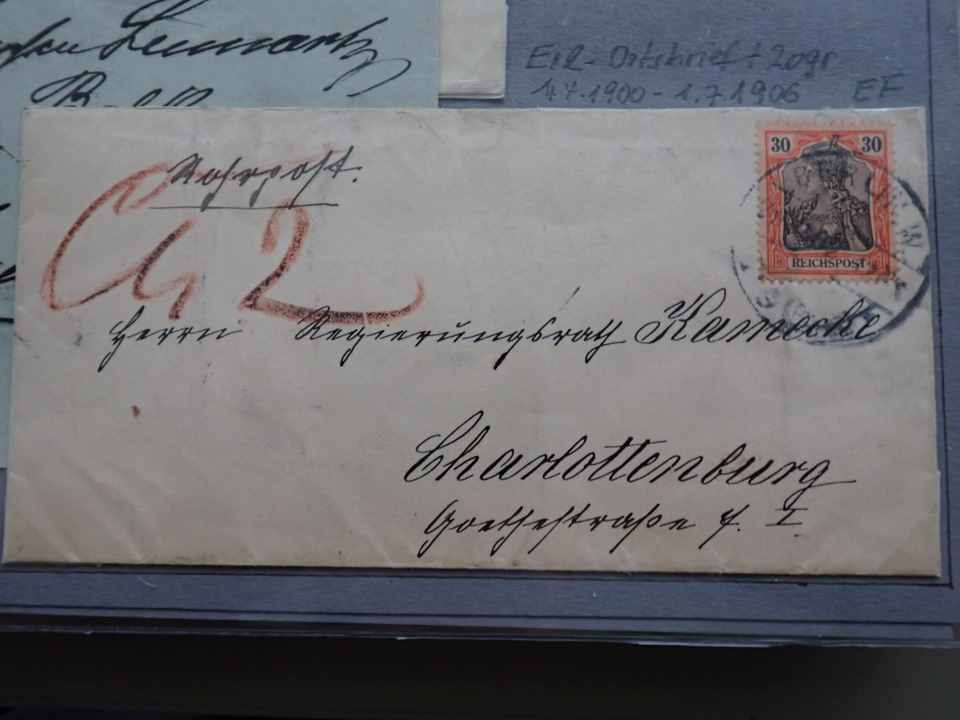 Lennartz
Eil-Ortsbrief + 20gr
1.4.1900 - 1.7.1906 EF
Rohrpost.
30 30
REICHSPOST
Ch 2
Herrn Regierungsrath Kamecke
Charlottenburg
Goethestraße I